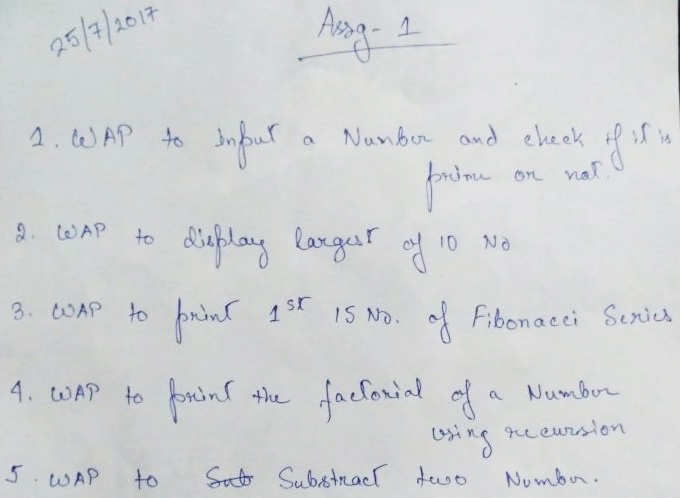 25/7/2017
Assg - 1
1. WAP to Input a Number and check if it is
prime or not.
2. WAP to display largest of 10 No
3. WAP to print 1st 15 No. of Fibonacci Series
4. WAP to print the factorial of a Number
using recursion
5. WAP to Sub Substract two Number.